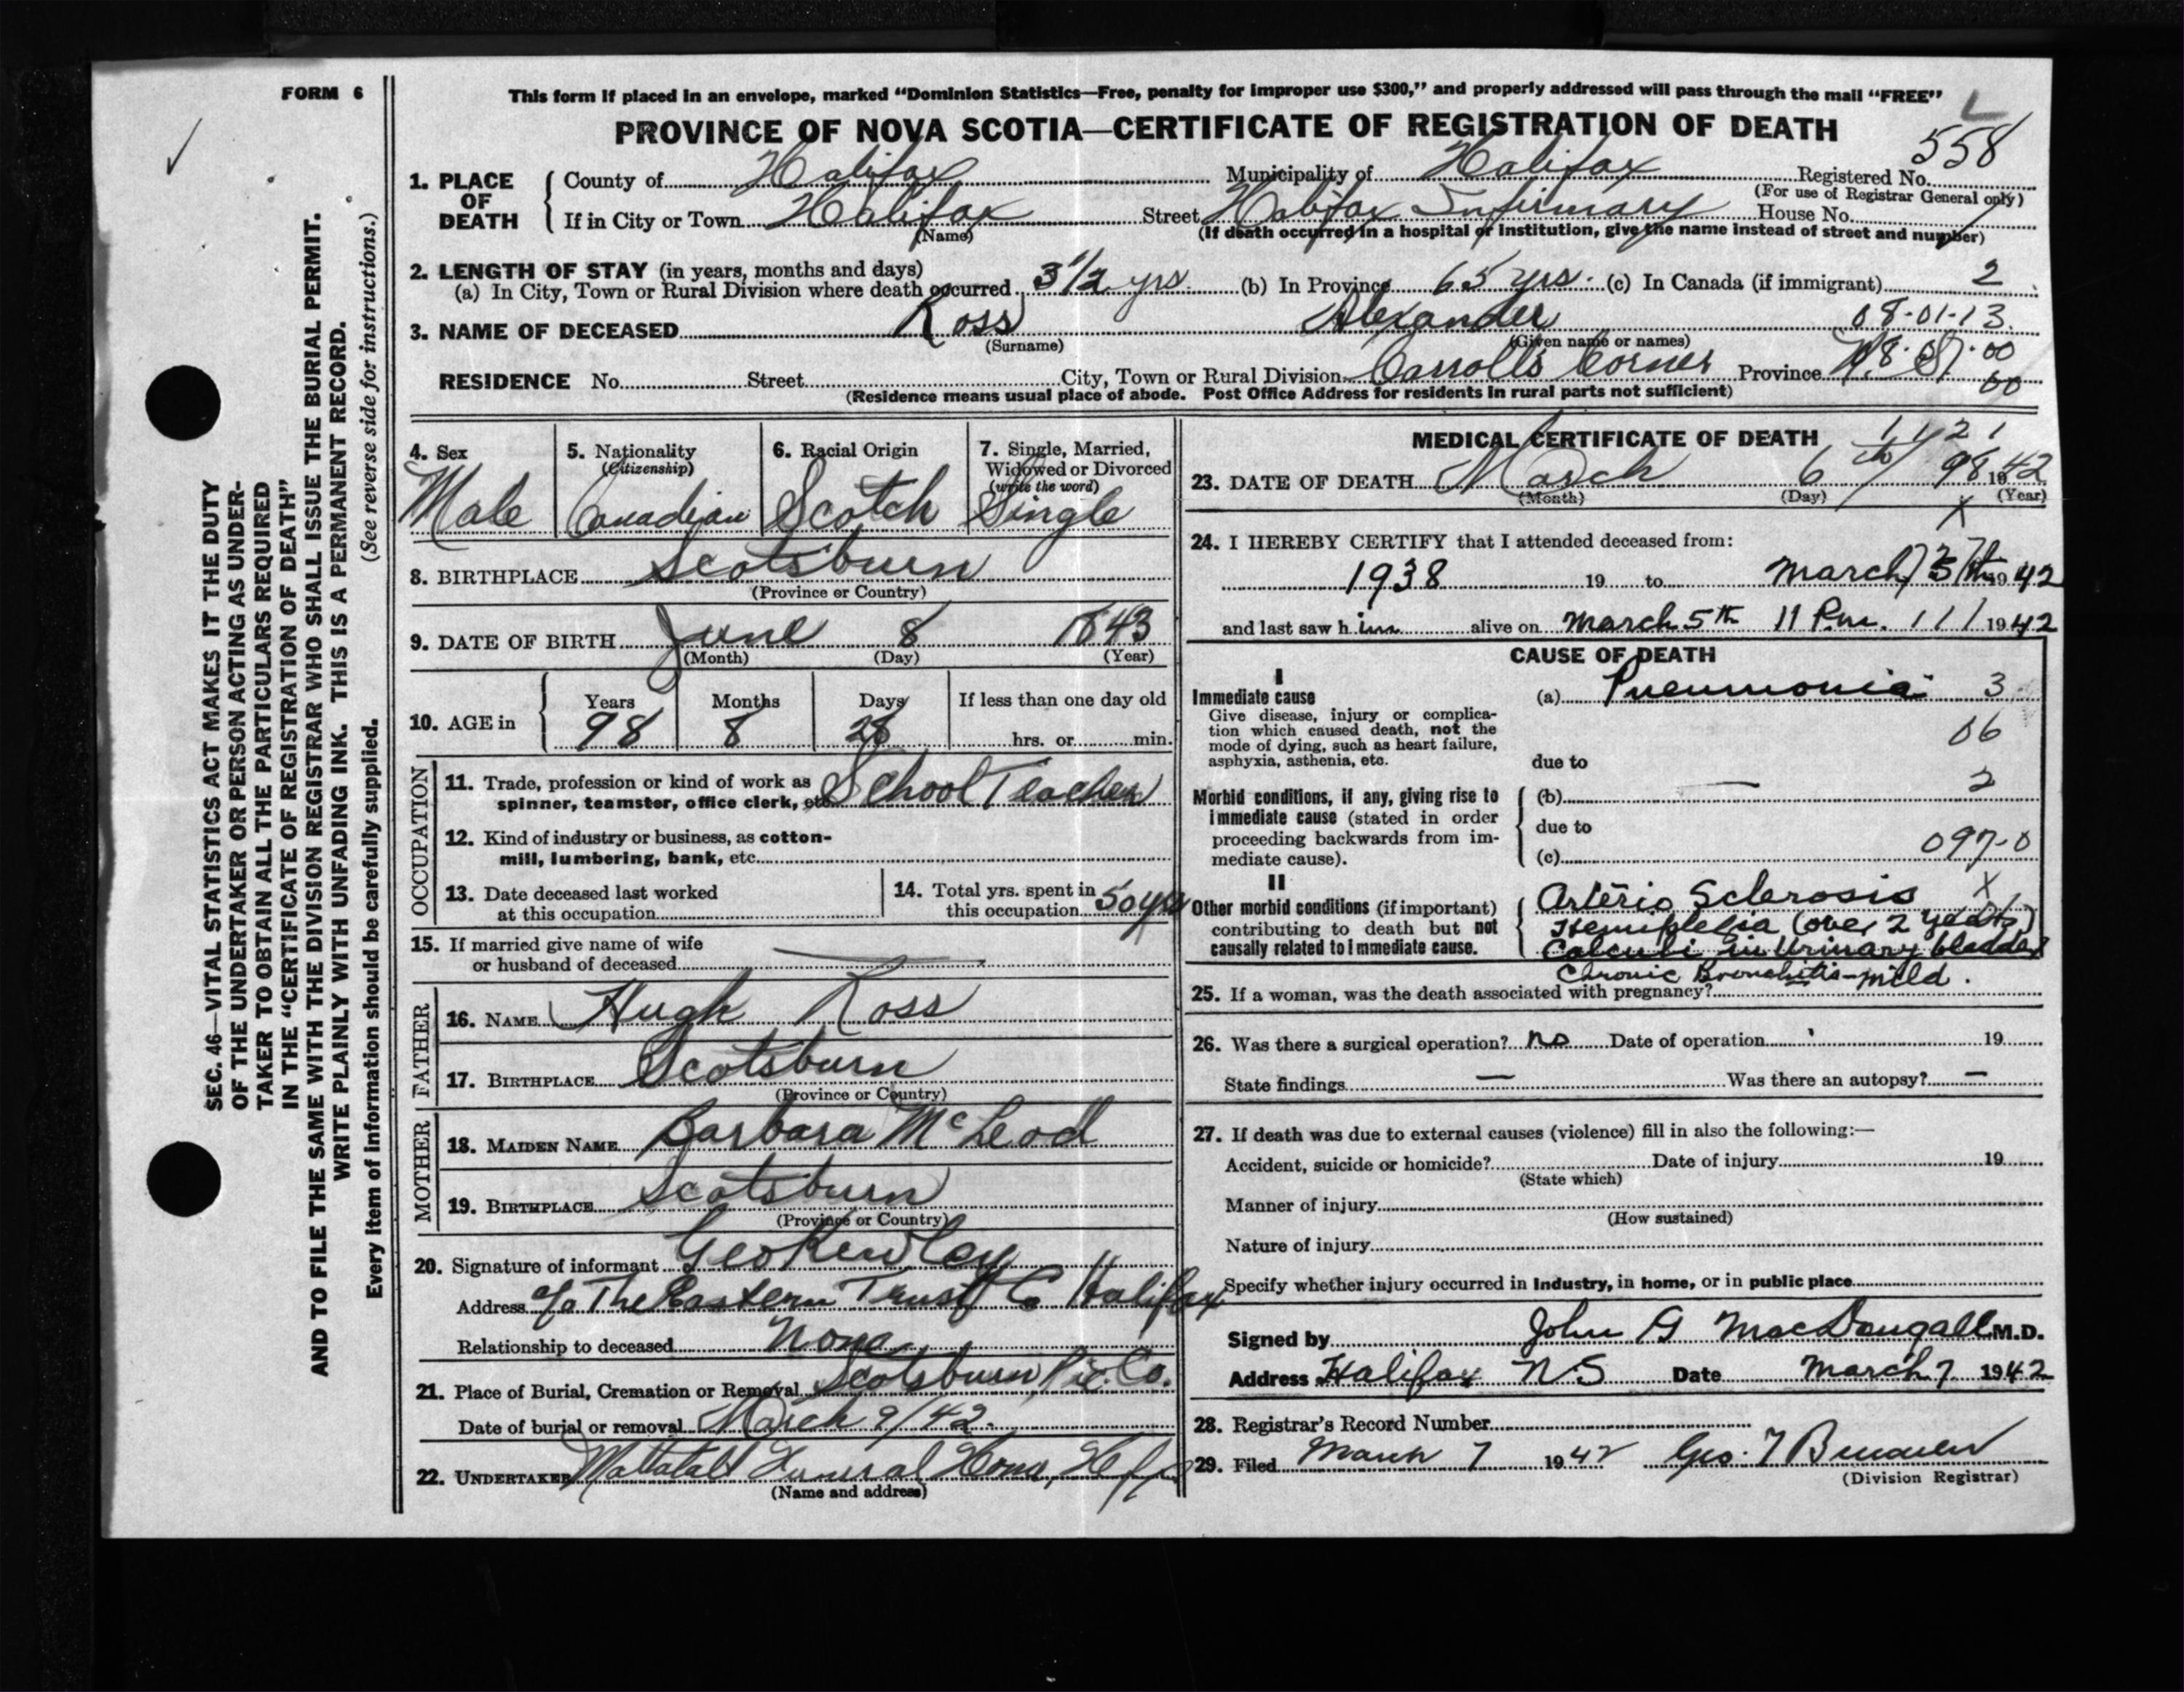 FORM 6
This form if placed in an envelope, marked “Dominion Statistics—Free, penalty for improper use $300,” and properly addressed will pass through the mail “FREE”
PROVINCE OF NOVA SCOTIA—CERTIFICATE OF REGISTRATION OF DEATH
558
1. PLACE OF DEATH County of Halifax Municipality of Halifax Registered No.
(For use of Registrar General only)
If in City or Town Halifax Street Halifax Infirmary House No.
(Name) (If death occurred in a hospital or institution, give the name instead of street and number)
2. LENGTH OF STAY (in years, months and days)
(a) In City, Town or Rural Division where death occurred 3 1/2 yrs. (b) In Province 65 yrs. (c) In Canada (if immigrant) 2
3. NAME OF DECEASED Ross Alexander 08-01-13
(Surname) (Given name or names)
RESIDENCE No. Street City, Town or Rural Division Carrolls Corner Province N. S.
00
(Residence means usual place of abode. Post Office Address for residents in rural parts not sufficient)
4. Sex 5. Nationality (Citizenship) 6. Racial Origin 7. Single, Married, Widowed or Divorced (write the word)
Male Canadian Scotch Single
8. BIRTHPLACE Scotsburn
(Province or Country)
9. DATE OF BIRTH June 8 1843
(Month) (Day) (Year)
10. AGE in Years Months Days If less than one day old
98 8 28 hrs. or min.
OCCUPATION
11. Trade, profession or kind of work as spinner, teamster, office clerk, etc. School Teacher
12. Kind of industry or business, as cotton-mill, lumbering, bank, etc.
13. Date deceased last worked at this occupation
14. Total yrs. spent in this occupation 50 yrs
15. If married give name of wife or husband of deceased
FATHER
16. NAME Hugh Ross
17. BIRTHPLACE Scotsburn
(Province or Country)
MOTHER
18. MAIDEN NAME Barbara McLeod
19. BIRTHPLACE Scotsburn
(Province or Country)
20. Signature of informant Geo Kewley
Address c/o The Eastern Trust Co Halifax
Relationship to deceased None
21. Place of Burial, Cremation or Removal Scotsburn, Pic. Co.
Date of burial or removal March 9/42.
22. UNDERTAKER Mattatall Funeral Home, Hfx
(Name and address)
MEDICAL CERTIFICATE OF DEATH 1 1 2 1
23. DATE OF DEATH March 6th 98 1942
(Month) (Day) (Year)
X
24. I HEREBY CERTIFY that I attended deceased from:
1938 19 to March 5th 1942
and last saw him alive on March 5th 11 P.m. 1942
CAUSE OF DEATH
I
Immediate cause (a) Pneumonia 3
Give disease, injury or complication which caused death, not the mode of dying, such as heart failure, asphyxia, asthenia, etc.
06
due to
2
Morbid conditions, if any, giving rise to immediate cause (stated in order proceeding backwards from immediate cause).
(b) —
due to
(c) 097-0
II
Other morbid conditions (if important) contributing to death but not causally related to immediate cause.
Arterio Sclerosis X
Hemiplegia (over 2 years)
Calculi in Urinary bladder
Chronic Bronchitis - mild.
25. If a woman, was the death associated with pregnancy?
26. Was there a surgical operation? no Date of operation 19
State findings — Was there an autopsy? —
27. If death was due to external causes (violence) fill in also the following:—
Accident, suicide or homicide? Date of injury 19
(State which)
Manner of injury
(How sustained)
Nature of injury
Specify whether injury occurred in Industry, in home, or in public place
Signed by John G MacDougall M.D.
Address Halifax N S Date March 7 1942
28. Registrar's Record Number
29. Filed March 7 1942 Geo. T
(Division Registrar)
SEC. 46—VITAL STATISTICS ACT MAKES IT THE DUTY
OF THE UNDERTAKER OR PERSON ACTING AS UNDER-
TAKER TO OBTAIN ALL THE PARTICULARS REQUIRED
IN THE “CERTIFICATE OF REGISTRATION OF DEATH”
AND TO FILE THE SAME WITH THE DIVISION REGISTRAR WHO SHALL ISSUE THE BURIAL PERMIT.
WRITE PLAINLY WITH UNFADING INK. THIS IS A PERMANENT RECORD.
Every item of information should be carefully supplied. (See reverse side for instructions.)